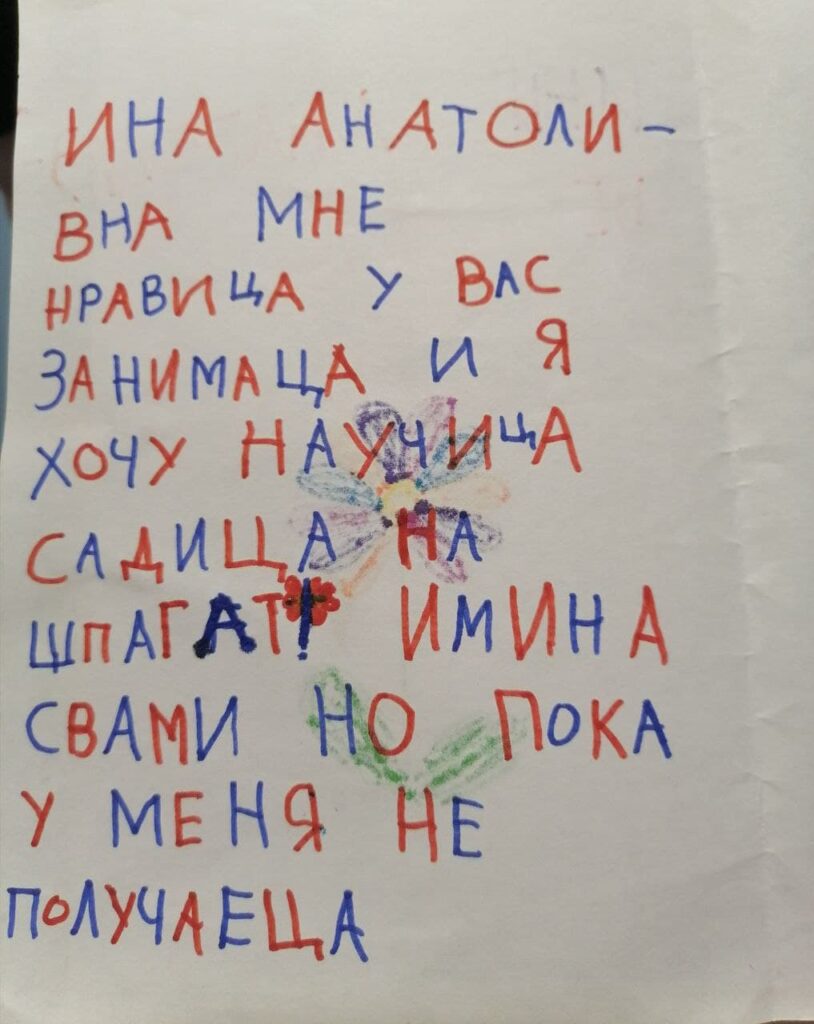 ИНА АНАТОЛИ-
ВНА МНЕ
НРАВИЦА У ВАС
ЗАНИМАЦА И Я
ХОЧУ НАУЧИЦА
САДИЦА НА
ШПАГАТ! ИМИНА
СВАМИ НО ПОКА
У МЕНЯ НЕ
ПОЛУЧАЕЦА